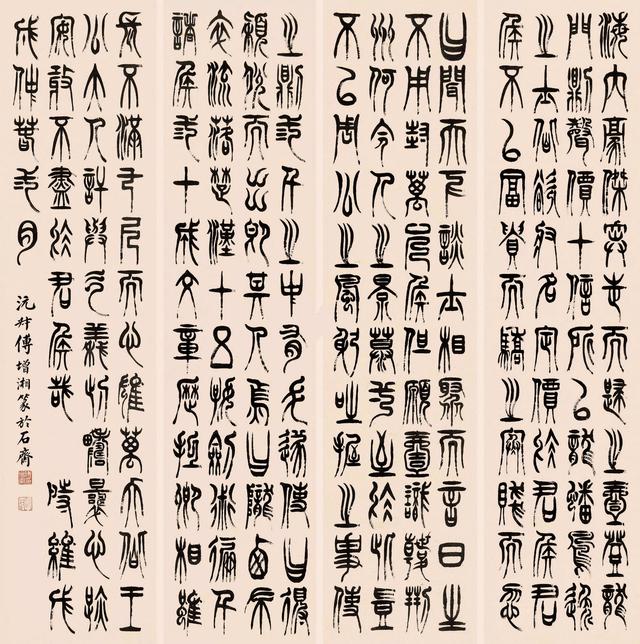 海內豪傑奔走而歸之壹登龍
門則聲價十倍所以龍蟠鳳逸
之士皆欲收名定價於君侯君
侯不以富貴而驕之寒賤而忽
白聞天下談士相聚而言曰生
不用封萬戶侯但願壹識韓荊
州何令人之景慕壹至於此豈
不以周公之風躬吐握之事使
之則三千之中有毛遂使白得
穎脫而出即其人焉白隴西布
衣流落楚漢十五好劍術徧干
諸侯三十成文章歷抵卿相雖
長不滿七尺而心雄萬夫皆王
公大人許與氣義此疇曩心跡
安敢不盡於君侯哉 時維戊
月
沅叔傅增湘篆於石齋